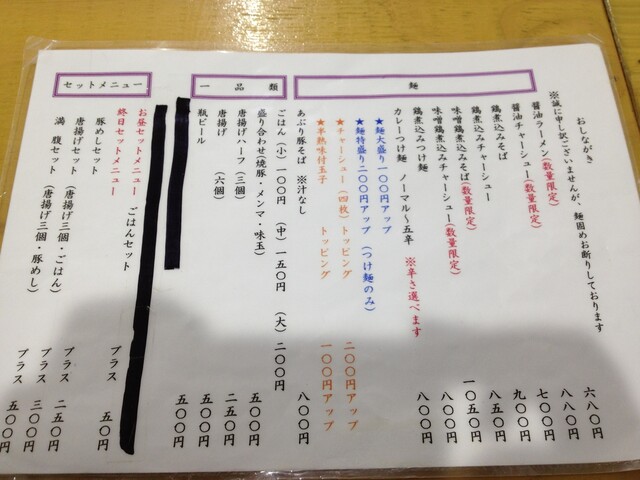 麺
おしながき
※誠に申し訳ございませんが、麺固めお断りしております
醤油ラーメン(数量限定) 六八〇円
醤油チャーシュー(数量限定) 八八〇円
鶏煮込みそば 七〇〇円
鶏煮込みチャーシュー 九〇〇円
味噌鶏煮込みそば(数量限定) 八五〇円
味噌鶏煮込みチャーシュー(数量限定) 一〇五〇円
鶏煮込みつけ麺 八〇〇円
カレーつけ麺 ノーマル～五辛 ※辛さ選べます 八〇〇円
★麺大盛り一〇〇円アップ
★麺特盛り二〇〇円アップ (つけ麺のみ)
★チャーシュー(四枚)トッピング 二〇〇円アップ
★半熟味付玉子 トッピング 一〇〇円アップ
あぶり豚そば ※汁なし 八〇〇円
一品類
ごはん(小)一〇〇円 (中)一五〇円 (大)二〇〇円
盛り合わせ(焼豚・メンマ・味玉) 五〇〇円
唐揚げハーフ(三個) 二五〇円
唐揚げ (六個) 五〇〇円
瓶ビール 五〇〇円
セットメニュー
お昼セットメニュー ごはんセット プラス 五〇円
終日セットメニュー
豚めしセット プラス 二五〇円
唐揚げセット (唐揚げ三個・ごはん) プラス 三〇〇円
満腹セット (唐揚げ三個・豚めし) プラス 五〇〇円